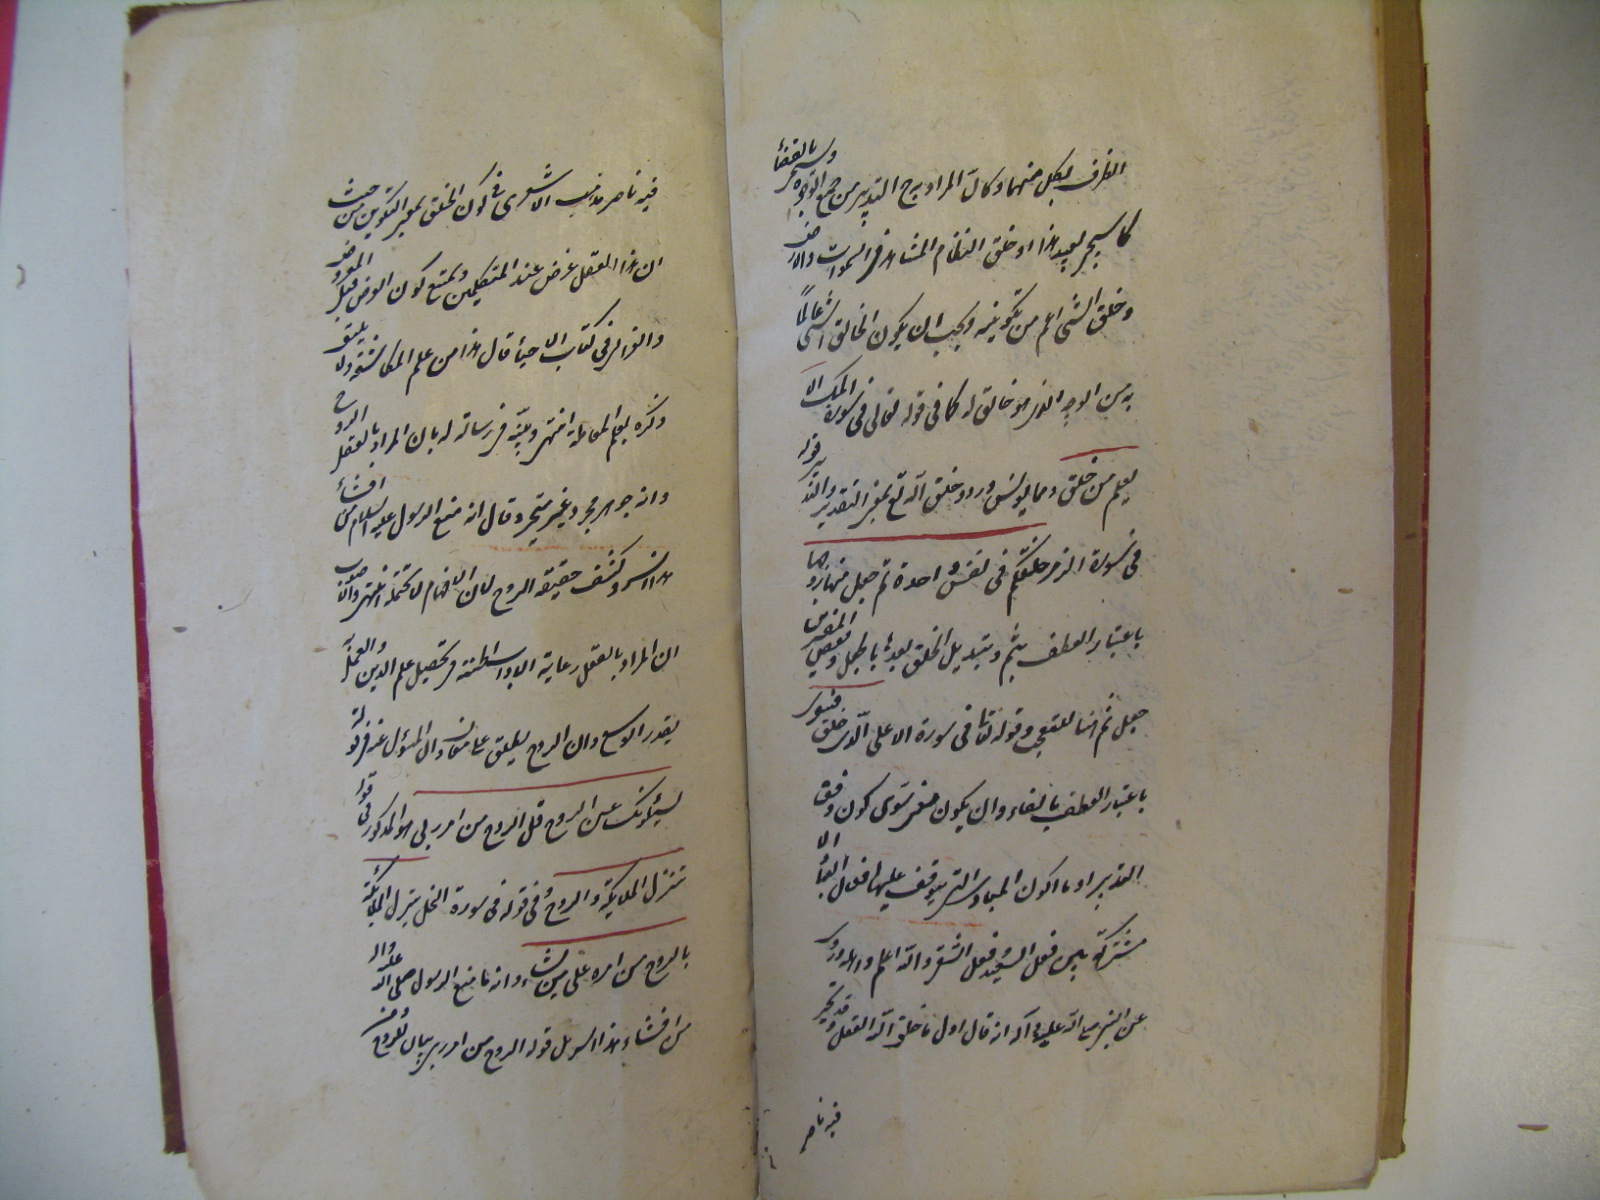 الظرف لكل منهما وكان المراد به ح التدبير من جميع الوجوه وسيجئ بالقضاء
كما سيجئ بعيد هذا او خلق النظام المشاهد في السموات والارض
وخلق الشئ اعم من تكوينه ويجب ان يكون الخالق للشئ عالما
به من الوجه الذى هو خالق له كما في قوله تعالى في سورة الملك الا
يعلم من خلق ومما يونس ورود خلق الله تع بمعنى التقدير والتدبير قوله
في سورة الزمر خلقكم من نفس واحدة ثم جعل منها زوجها
باعتبار العطف بثم وتبديل الخلق بعده بالجعل
جعل ثم هنا للتعجب وقوله تعالى في سورة الاعلى الذى خلق فسوى
باعتبار العطف بالفاء وان يكون معنى سوى كون وفق
التدبير او ما اكون المبادى التى يتوقف عليها افعال العباد الا
مشتركة بين فعل السعيد وفعل الشقى والله اعلم واما ورود
عن النبى صلى الله عليه وآله انه قال اول ما خلق الله العقل وقد يجئ
فيه ناصر
فيه ناصر مذهب الاشعرى في كون الخلق بمعنى التكوين من حيث
ان هذا العقل عرض عند المتكلمين ويمتنع كون العرض قبل المعروض
والغزالى في كتاب الاحياء قال هذا من علم المكاشفة ولا يليق
ذكره بعلم المعاملة انتهى وبينه في رسالة له بان المراد بالعقل الروح
وانه جوهر مجرد غير متحيز وقال انه منع الرسول عليه السلام من افشاء
هذا السر وكشف حقيقة الروح لان الافهام لا تحتمله انتهى والاصوب
ان المراد بالعقل رعاية الاداب الحسنة في تحصيل علم الدين والعمل به
بقدر الوسع وان الروح يطلق على معان وان المسؤل عنه في قوله
يسئلونك عن الروح قل الروح من امر ربى هو المذكور في قوله
تنزل الملائكة والروح وفي قوله في سورة النحل ينزل الملائكة
بالروح من امره على من يشاء وانه ما منع الرسول صلى الله عليه واله
من افشاء هذا السر بل قوله الروح من امر ربى بيان